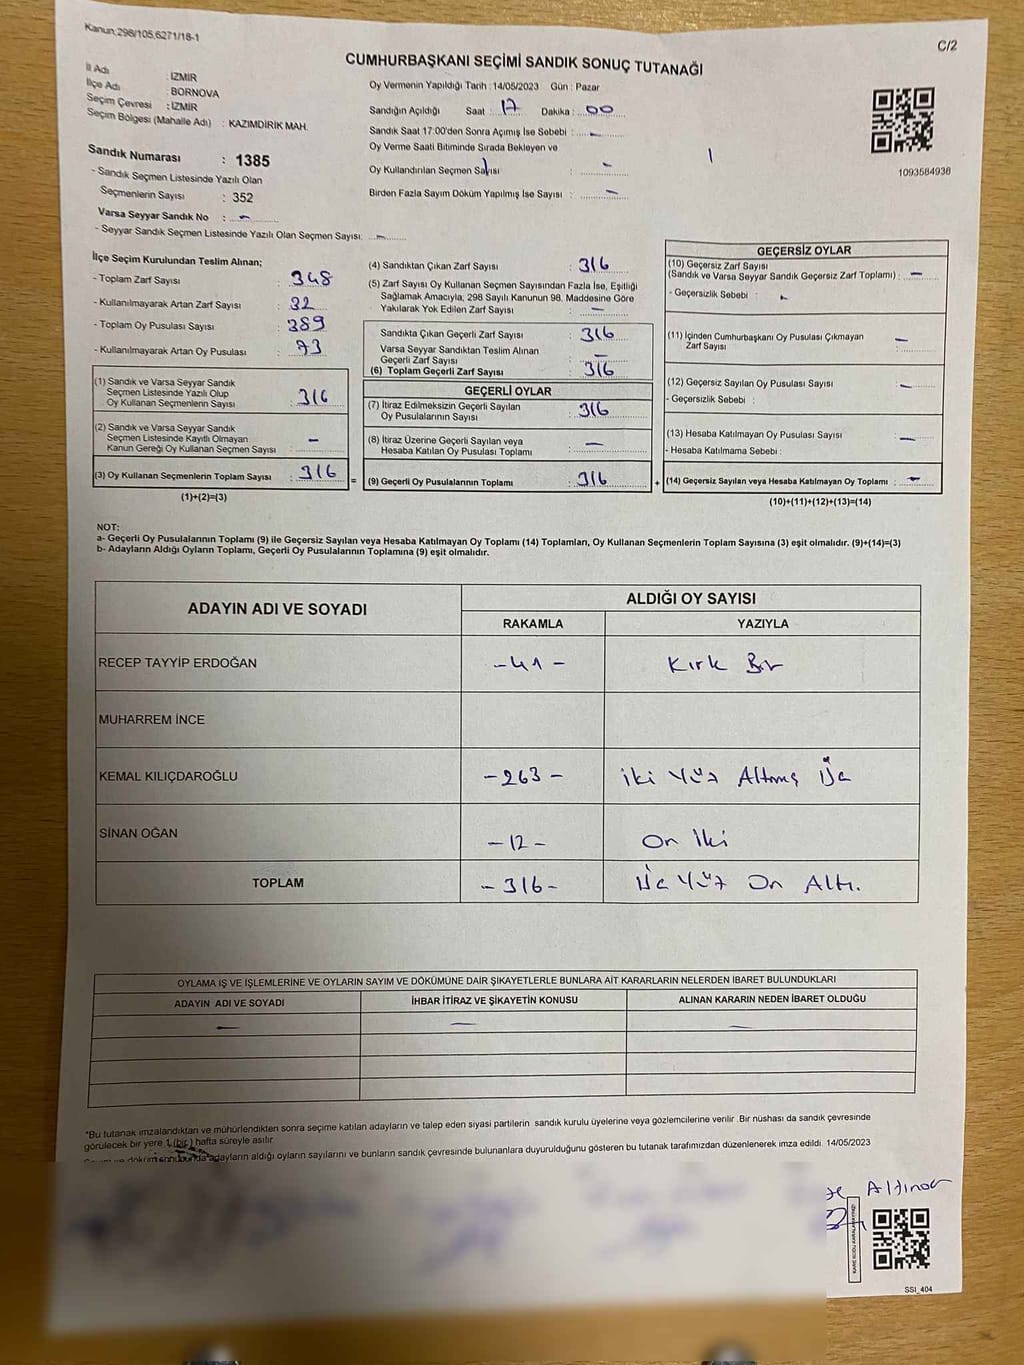 Kanun;298/105,6271/18-1
C/2
CUMHURBAŞKANI SEÇİMİ SANDIK SONUÇ TUTANAĞI
İl Adı : İZMİR
İlçe Adı : BORNOVA
Seçim Çevresi : İZMİR
Seçim Bölgesi (Mahalle Adı) : KAZIMDİRİK MAH.
Oy Vermenin Yapıldığı Tarih : 14/05/2023 Gün : Pazar
Sandığın Açıldığı Saat : 17 Dakika : 00
Sandık Saat 17:00'den Sonra Açımış İse Sebebi : -
Oy Verme Saati Bitiminde Sırada Bekleyen ve
Oy Kullandırılan Seçmen Sayısı : -
Birden Fazla Sayım Döküm Yapılmış İse Sayısı : -
1093584936
Sandık Numarası : 1385
- Sandık Seçmen Listesinde Yazılı Olan
Seçmenlerin Sayısı : 352
Varsa Seyyar Sandık No : -
- Seyyar Sandık Seçmen Listesinde Yazılı Olan Seçmen Sayısı: -
İlçe Seçim Kurulundan Teslim Alınan;
- Toplam Zarf Sayısı : 348
- Kullanılmayarak Artan Zarf Sayısı : 32
- Toplam Oy Pusulası Sayısı : 389
- Kullanılmayarak Artan Oy Pusulası : 73
(1) Sandık ve Varsa Seyyar Sandık
Seçmen Listesinde Yazılı Olup
Oy Kullanan Seçmenlerin Sayısı : 316
(2) Sandık ve Varsa Seyyar Sandık
Seçmen Listesinde Kayıtlı Olmayan
Kanun Gereği Oy Kullanan Seçmen Sayısı : -
(3) Oy Kullanan Seçmenlerin Toplam Sayısı : 316
(1)+(2)=(3)
(4) Sandıktan Çıkan Zarf Sayısı : 316
(5) Zarf Sayısı Oy Kullanan Seçmen Sayısından Fazla İse, Eşitliği
Sağlamak Amacıyla, 298 Sayılı Kanunun 98. Maddesine Göre
Yakılarak Yok Edilen Zarf Sayısı : -
Sandıkta Çıkan Geçerli Zarf Sayısı : 316
Varsa Seyyar Sandıktan Teslim Alınan
Geçerli Zarf Sayısı : -
(6) Toplam Geçerli Zarf Sayısı : 316
GEÇERLİ OYLAR
(7) İtiraz Edilmeksizin Geçerli Sayılan
Oy Pusulalarının Sayısı : 316
(8) İtiraz Üzerine Geçerli Sayılan veya
Hesaba Katılan Oy Pusulası Toplamı : -
= (9) Geçerli Oy Pusulalarının Toplamı : 316
GEÇERSİZ OYLAR
(10) Geçersiz Zarf Sayısı
(Sandık ve Varsa Seyyar Sandık Geçersiz Zarf Toplamı) : -
- Geçersizlik Sebebi : -
(11) İçinden Cumhurbaşkanı Oy Pusulası Çıkmayan
Zarf Sayısı : -
(12) Geçersiz Sayılan Oy Pusulası Sayısı : -
- Geçersizlik Sebebi :
(13) Hesaba Katılmayan Oy Pusulası Sayısı : -
- Hesaba Katılmama Sebebi :
+ (14) Geçersiz Sayılan veya Hesaba Katılmayan Oy Toplamı : -
(10)+(11)+(12)+(13)=(14)
NOT:
a- Geçerli Oy Pusulalarının Toplamı (9) ile Geçersiz Sayılan veya Hesaba Katılmayan Oy Toplamı (14) Toplamları, Oy Kullanan Seçmenlerin Toplam Sayısına (3) eşit olmalıdır. (9)+(14)=(3)
b- Adayların Aldığı Oyların Toplamı, Geçerli Oy Pusulalarının Toplamına (9) eşit olmalıdır.
ADAYIN ADI VE SOYADI
ALDIĞI OY SAYISI
RAKAMLA YAZIYLA
RECEP TAYYİP ERDOĞAN -41- Kırk Bir
MUHARREM İNCE
KEMAL KILIÇDAROĞLU -263- iki Yüz Altmış Üç
SİNAN OĞAN -12- On İki
TOPLAM -316- Üç Yüz On Altı.
OYLAMA İŞ VE İŞLEMLERİNE VE OYLARIN SAYIM VE DÖKÜMÜNE DAİR ŞİKAYETLERLE BUNLARA AİT KARARLARIN NELERDEN İBARET BULUNDUKLARI
ADAYIN ADI VE SOYADI İHBAR İTİRAZ VE ŞİKAYETİN KONUSU ALINAN KARARIN NEDEN İBARET OLDUĞU
- - -
*Bu tutanak imzalandıktan ve mühürlendikten sonra seçime katılan adayların ve talep eden siyasi partilerin sandık kurulu üyelerine veya gözlemcilerine verilir. Bir nüshası da sandık çevresinde
görülecek bir yere 1 (bir) hafta süreyle asılır.
döküm sonucunda adayların aldığı oyların sayılarını ve bunların sandık çevresinde bulunanlara duyurulduğunu gösteren bu tutanak tarafımızdan düzenlenerek imza edildi. 14/05/2023
Altınok
SSI_404